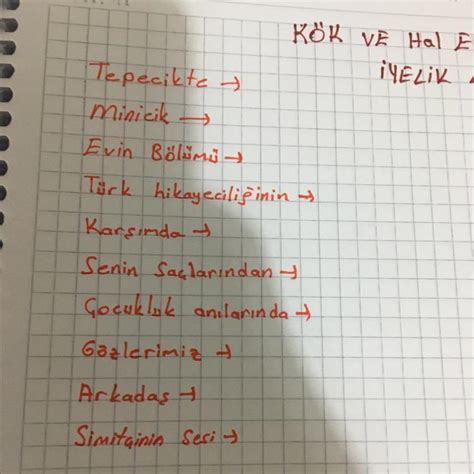 KÖK VE Hal E
İYELİK
Tepecikte →
Minicik →
Evin Bölümü →
Türk hikayeciliğinin →
Karşımda →
Senin Saçlarından →
Çocukluk anılarında →
Gözlerimiz →
Arkadaş →
Simitçinin Sesi →